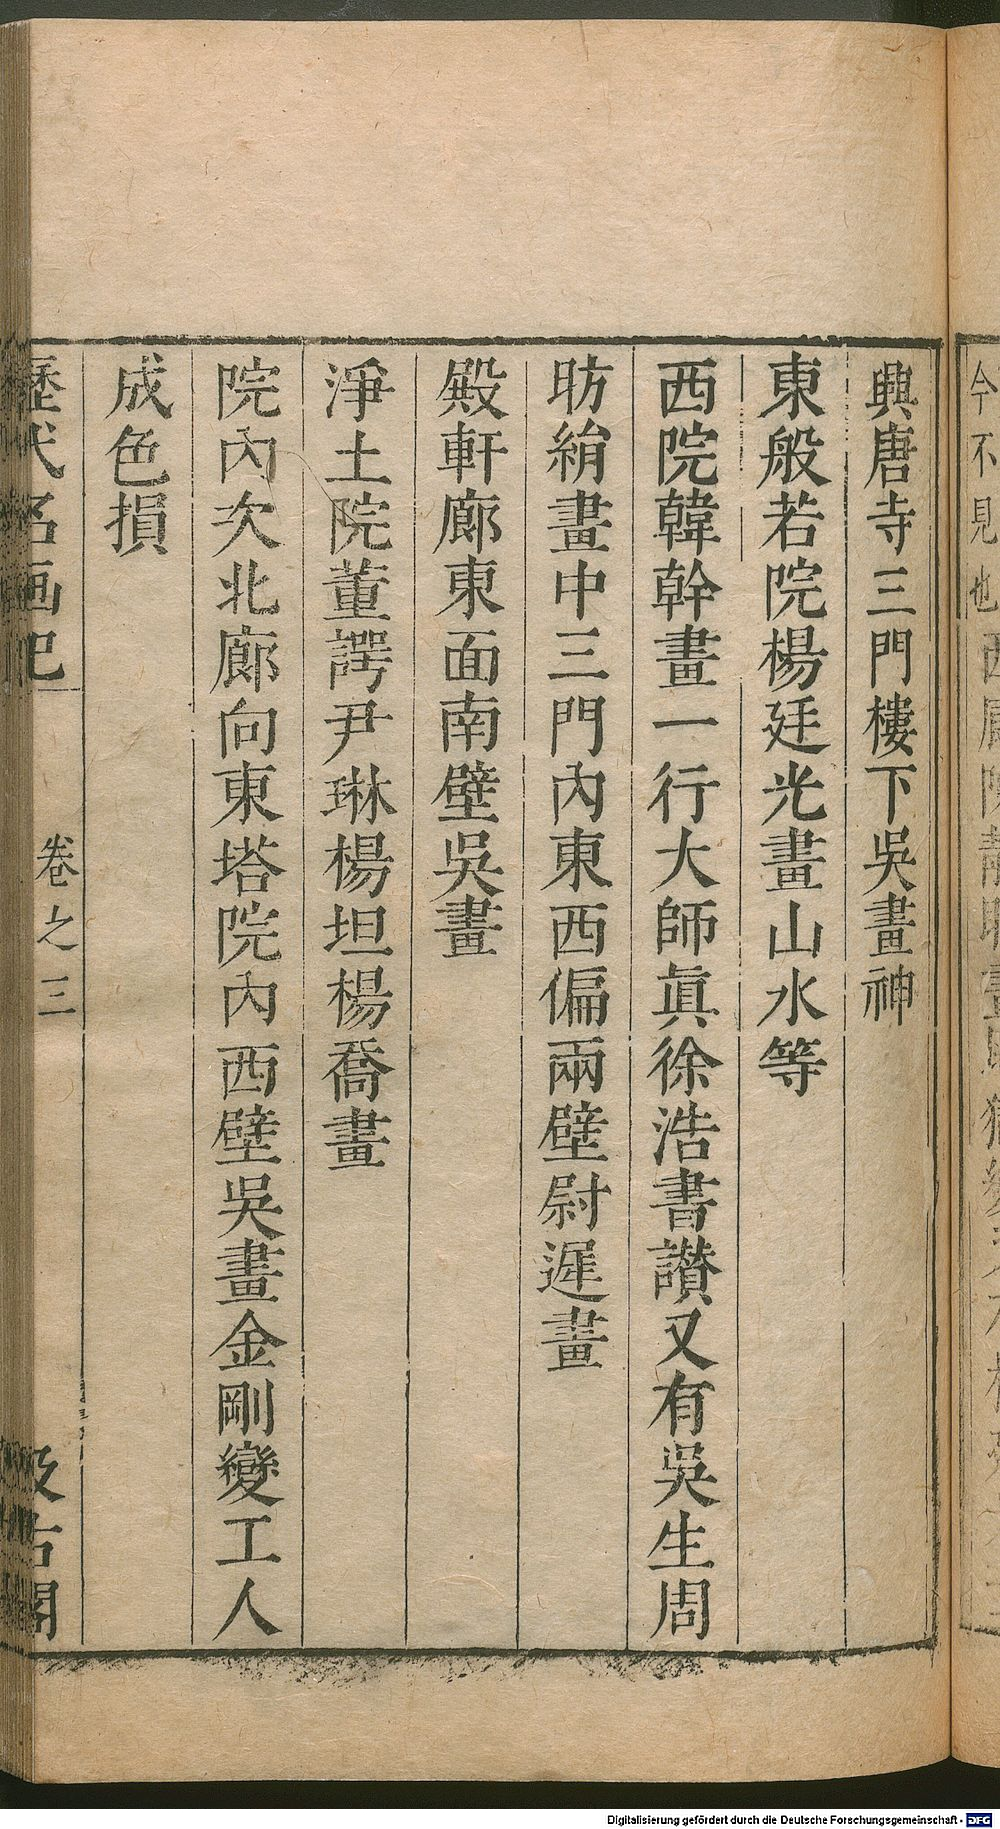 今不見也
興唐寺三門樓下吳畫神
東般若院楊廷光畫山水等
西院韓幹畫一行大師眞徐浩書讃又有吳生周
昉絹畫中三門內東西偏兩壁尉遲畫
殿軒廊東面南壁吳畫
淨土院董諤尹琳楊坦楊喬畫
院內次北廊向東塔院內西壁吳畫金剛變工人
成色損
歷代名画記 卷之三 汲古閣
Digitalisierung gefördert durch die Deutsche Forschungsgemeinschaft - DFG